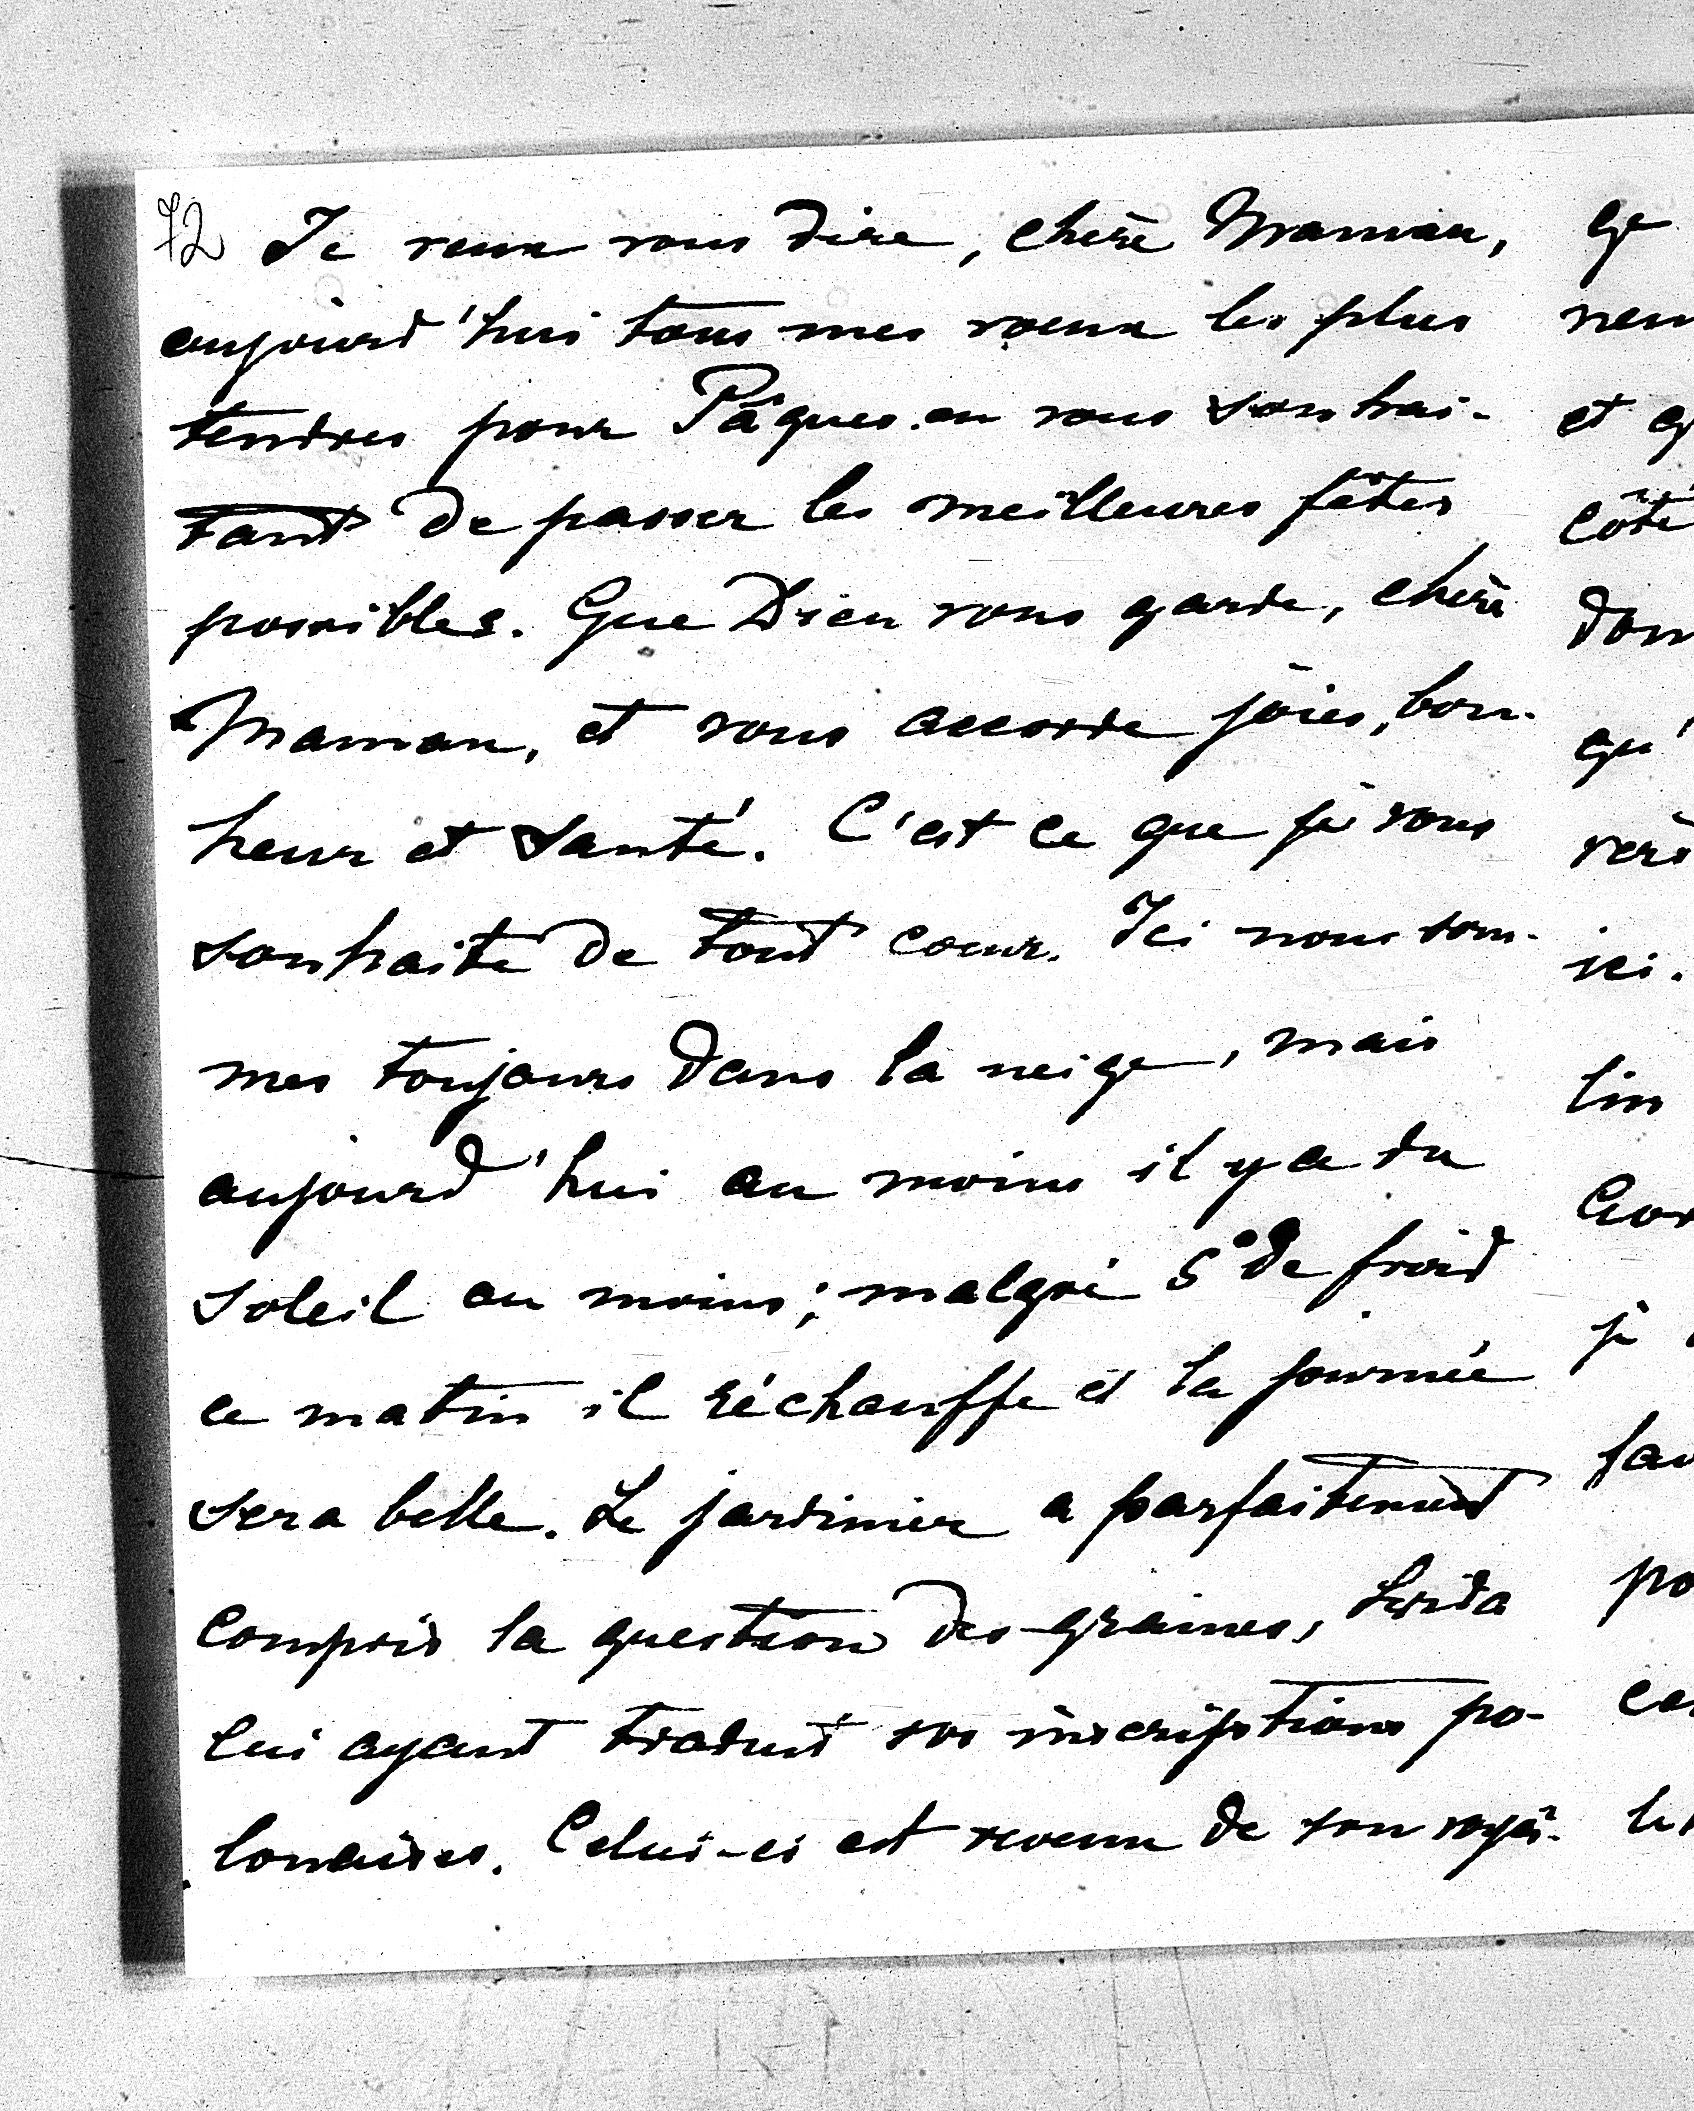 72 Je veux vous dire, chère Maman,
aujourd'hui tous mes voeux les plus
tendres pour Pâques en vous souhai-
tant de passer les meilleures fêtes
possibles. Que Dieu vous garde, chère
Maman, et vous accorde joies, bon-
heur et santé. C'est ce que je vous
souhaite de tout coeur. Ici nous som-
mes toujours dans la neige, mais
aujourd'hui au moins il y a du
soleil au moins; malgré 5° de froid
ce matin il réchauffe et la journée
sera belle. Le jardinier a parfaitement
compris la question des graines,
lui ayant traduit vos inscriptions po-
lonaises. Celui-ci est revenu de son
ge
et
côté
qu'
ici.
je